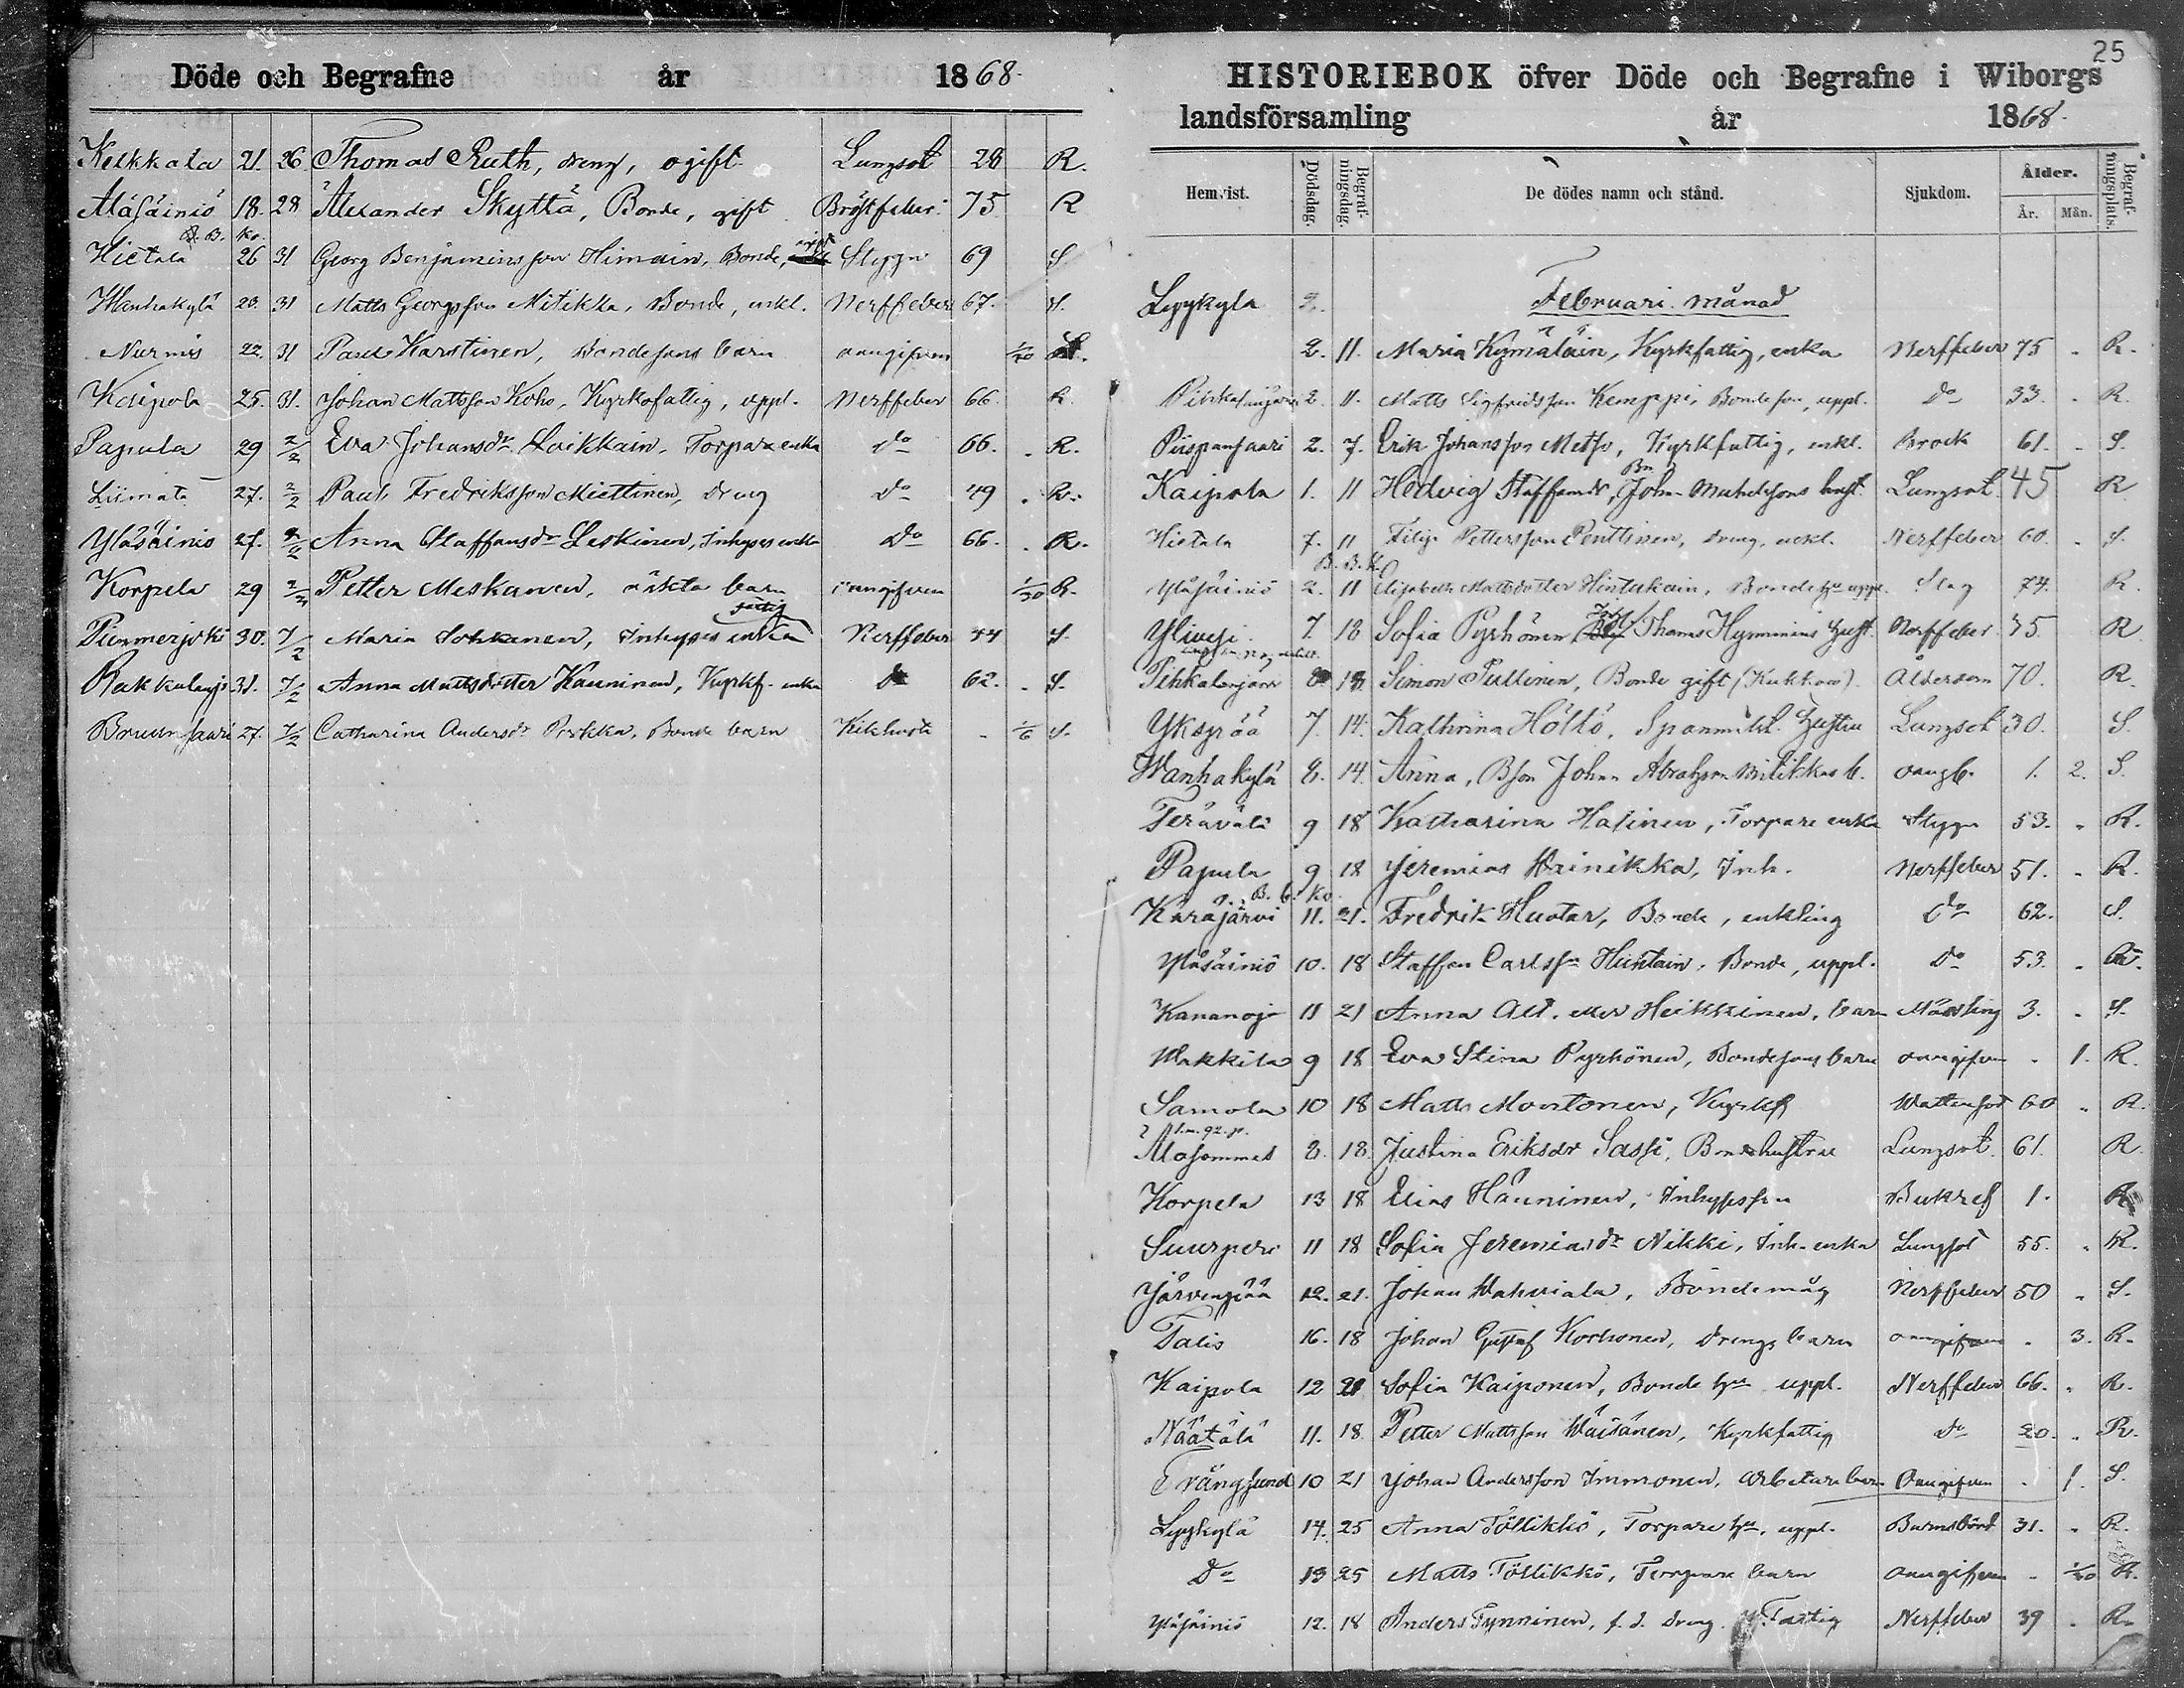 Döde och Begrafne år 1868.
Kelkkala 21. 26. Thomas Ruth, dreng, ogift. Lungsot 28 R.
Alasäiniö 18. 28 Alexander Skyttä, Bonde, gift. Bröstfeber 75 R
B. B. Ko.
Hietala 26 31 Georg Benjaminsson Himain, Bonde, gift Stygn 69 S
Wanhakylä 23. 31 Matts Georgsson Mitikka, Bonde, enkl. Nerffeber 67. S.
Nurmis 22. 31 Paul Karstinen, Bondesons barn oangifven 1/20
Kaipola 25. 31. Johan Mattsson Koho, Kyrkofattig, uppl. Nerffeber 66. R.
Papula 29 2/2 Eva Johansdr Laikkain, Torpare enka do 66. R.
Liimata 27. 2/2 Paul Fredriksson Miettinen, dreng do 49 R.
Yläsäiniö 27. 2/2 Anna Staffansdr Leskinen, Inhyses enka do 66. R.
Korpela 29 2/2 Petter Meskanen, oäkta barn oangifven 1/20 R.
fattig
Pummerjoki 30. 7/2 Maria Sohkanen, Inhyses enka Nerffeber 44 S.
Rakkolanjo 31. 7/2 Anna Mattsdotter Kauninen, Kyrkf. enka do 62. S.
Bruunsaari 27. 7/2 Catharina Andersdr Pirkka, Bonde barn Kikhosta 1/6 S.
25
HISTORIEBOK öfver Döde och Begrafne i Wiborgs
landsförsamling år 1868.
Hemvist. Dödsdag. Begrafningsdag. De dödes namn och stånd. Sjukdom. Ålder. År. Mån. Begrafningsplats.
Lyykylä 2. Februari månad
2. 11. Maria Kymäläin, Kyrkfattig, enka Nerffeber 75 R.
2. 11. Matts Sigfridsson Kemppi, Bondeson, uppl. do 33. R.
Piispansaari 2. 7. Erik Johansson Metso, Kyrkfattig, enkl. Brock 61. S.
Kaipola 1. 11 Hedvig Staffansdr, Bn Johan Mickelssons hust. Lungsot 45 R
Hietala 7. 11 Filip Pettersson Penttinen, dreng, enkl. Nerffeber 60. S.
B. B. K.
Yläsäiniö 2. 11 Elisabeth Mattsdotter Hintukain, Bonde hu uppl. Slag 74. R.
Ylivesi 7. 18 Sofia Pyrhönen, Thomas Hymminens hust. Nerffeber 35. R
Pihkalanjärvi 18 Simon Pullinen, Bonde gift (Kukkaro). Ålderdom 70. R.
Ykspää 7. 14. Kathrina Höltö, Spanmåls hustru Lungsot 30. S.
Wanhakylä 8. 14. Anna, Bson Johan Abrahsson Mitikkas b. oangb. 1. 2. S.
Terävälä 9 18 Katharina Halinen, Torpare enka Stygn 53. R.
Papula 9 18 Jeremias Wainikka, Inh. Nerffeber 51. R.
B. B. Ko.
Karäjärvi 11. 21. Fredrik Huotar, Bonde, enkling do 62. S.
Yläsäiniö 10. 18 Staffan Carlsson Hintain, Bonde, uppl. do 53. R.
Kananoja 11 21 Anna Heikkinen, barn Mässling 3. S.
Wakkila 9 18 Eva Stina Pyrhönen, Bondesons barn oangifven 1. R.
Samola 10 18 Matts Montonen, Kyrkf Wattensot 60 R.
Alasommes 8. 18. Justina Eriksdr Sassi, Bondehustru Lungsot. 61. R
Korpela 13 18 Elias Hänninen, Inhysesson 1. R
Suurpero 11 18 Sofia Jeremiasdr Nikki, Inh. enka Lungsot 55. R.
Järvenpää 12. 21. Johan Wahviala, Bondemåg Nerffeber 50 S.
Talis 16. 18 Johan Gustaf Korhonen, drengs barn oangifven 3. R.
Kaipola 12 21 Sofia Kaiponen, Bonde hu uppl. Nerffeber 66. R.
Näätälä 11. 18. Petter Mattsson Wäisänen, Kyrkfattig do 20. R.
Trångsund 10 21 Johan Andersson Immonen, arbetare barn Oangifven 1. S.
Lyykylä 14. 25 Anna Töllikkö, Torpare hu, uppl. Barnsbörd 31. R.
Do 13 25 Matts Töllikkö, Torpare barn oangifven 1/20 R.
Yläsäiniö 12. 18 Anders Tynninen, f. d. dreng. Fattig Nerffeber 39 R.